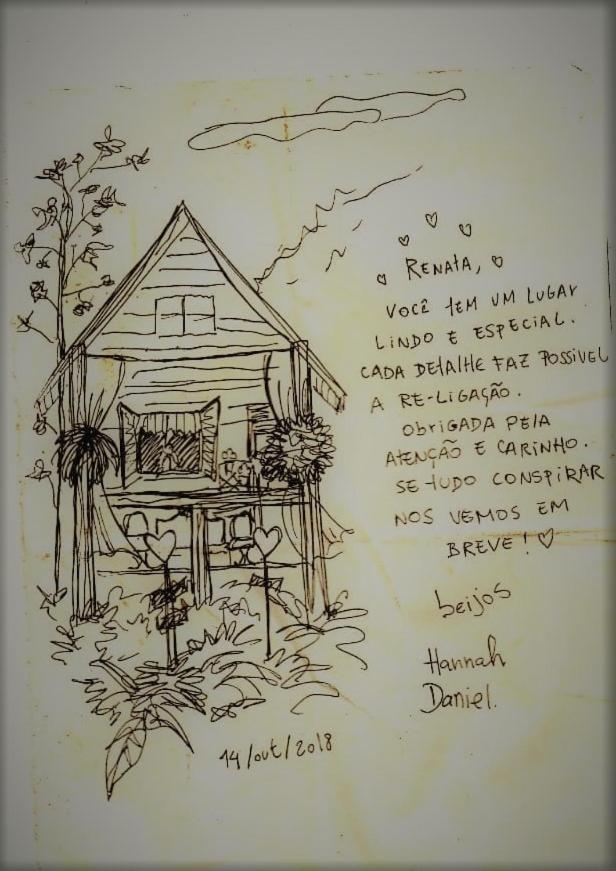 RENATA,
VOCÊ TEM UM LUGAR
LINDO E ESPECIAL.
CADA DETALHE FAZ POSSIVEL
A RE-LIGAÇÃO.
ObRIGADA PELA
ATENÇÃO E CARINHO.
SE TUDO CONSPIRAR
NOS VEMOS EM
BREVE!
beijos
Hannah
Daniel.
14/out/2018